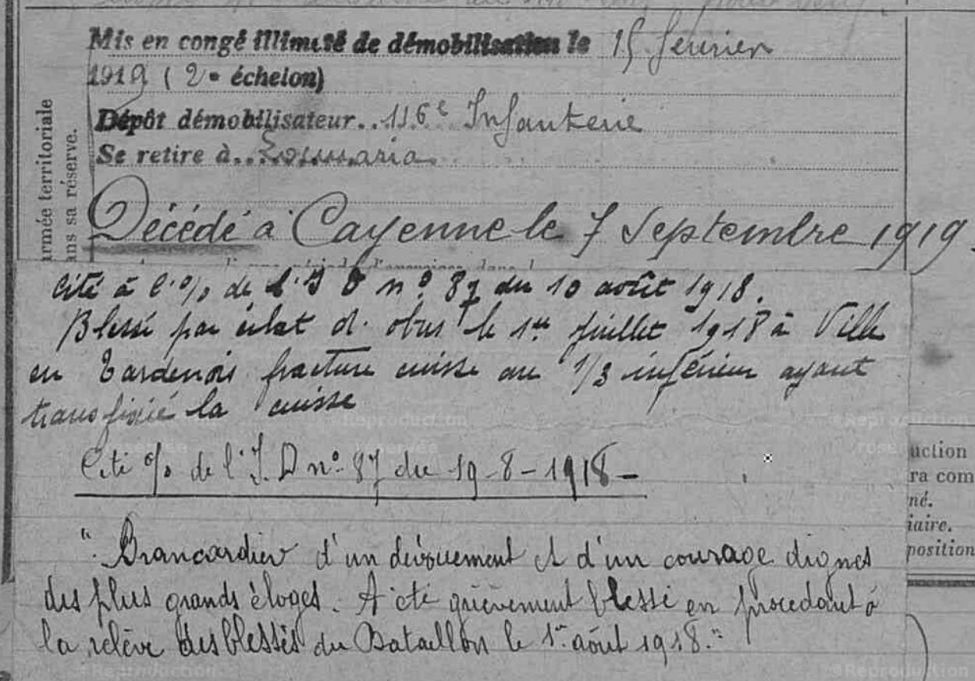 Mis en congé illimité de démobilisation le 15 février
1919 (2e échelon)
Dépôt démobilisateur..116e Infanterie
Se retire à..
armée territoriale
ans sa réserve.
Décédé à Cayenne le 7 Septembre 1919.
Cité à l'o/o de l'I D n° 87 du 10 août 1918.
Blessé par éclat d'obus le 1er juillet 1918 à Ville
en Tardenois fracture cuisse au 1/3 inférieur ayant
transfixié la cuisse
Cité o/o de l'I.D n° 87 du 19-8-1918-
"Brancardier d'un dévouement et d'un courage dignes
des plus grands éloges. A été grièvement blessé en procédant à
la relève des blessés du Bataillon le 1er août 1918."
uction
ra com
né.
iaire.
position
Reproduction